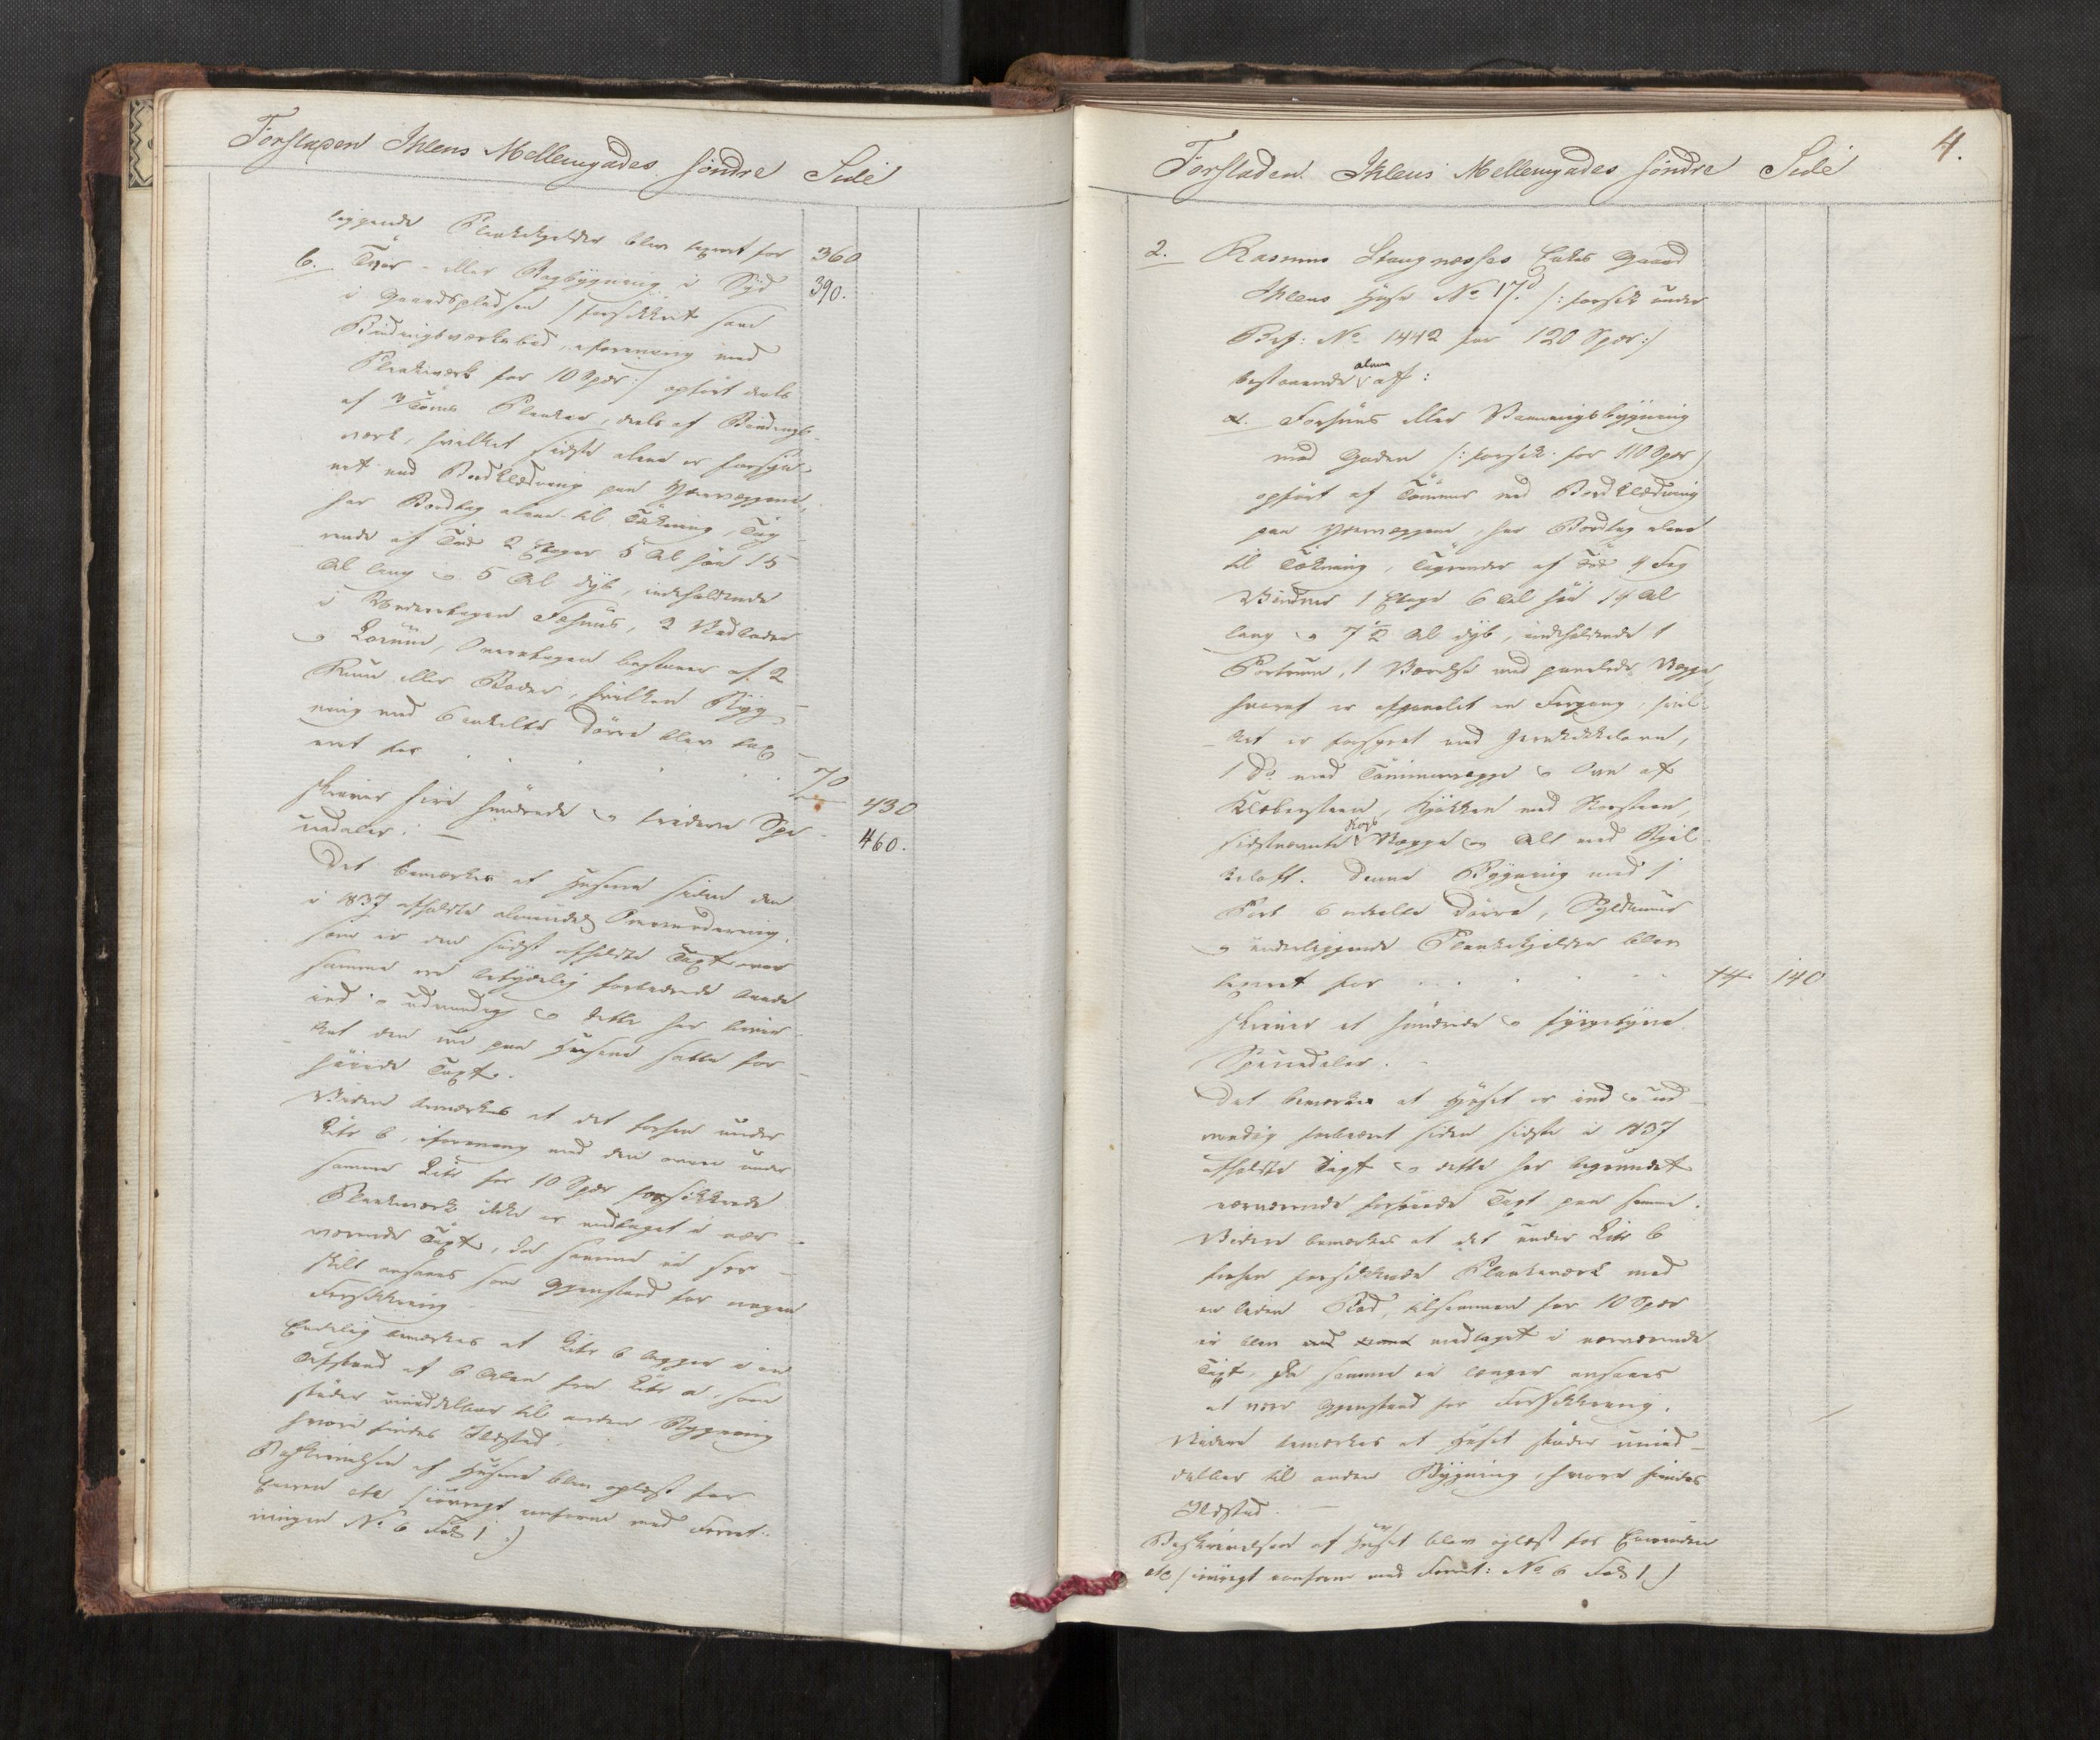 Forstaden Ihlens Mellemgades søndre Side
liggende Plankekjelder blev taxeret for 360
b. Tvær- eller Bagbygning i Syd 390.
i Gaardspladsen /: forsikkret som
Bindingsværksbod, i forening med
Plankeværk for 10 Spdr :/ opført deels
af 3 Toms Planker, deels af Bindings-
værk, hvilket sidste alene er forsy-
net med Bordklædning paa Ydervæggene,
har Bordtag alene til Tækning, Tag-
rende af Træ 2 Etager 5 Al høi 15
Al lang og 5 Al dyb, indeholdende
i Underetagen Fæhuus, 2 Vedboder
og Locum, Overetagen bestaaer af 2
Rum eller Boder, hvilken Byg-
ning med 6 enkelte Dörre blev tax-
eret for . . . . 70
skriver fire hundrede og tredive Spe- 430
ciedaler. 460.
Det bemærkes at Husene siden den
i 1837 afholdte almindelig Omvurdering,
som er den sidst afholdte Taxt over
samme ere betydelig forbedrede baade
ind- og udvendig og dette har bevir-
ket den nu paa Husene satte for-
høiede Taxt.
Videre bemærkes at det forhen under
Litr b, i forening med den under
samme Litr for 10 Spdr forsikkrede
Plankeværk ikke er medtaget i nær-
værende Taxt, da samme ei sær-
skilt ansees som Gjenstand for nogen
Forsikkring.
Endelig bemærkes at Litr b ligger i en
Afstand af 6 Alen fra Litr a, som
støder umiddelbar til anden Bygning
hvori findes Ildsted.
Beskrivelsen af Husene blev oplæst for
Eieren etc /: iøvrigt conform med Forret-
ningen No 6 Fol 1 :/
4.
Forstaden Ihlens Mellemgades søndre Side
2. Rasmus Stangnesses Enkes Gaard
Ihlens Huse No 17d /: forsik under
Bes: No 1442 for 120 Spdr :/
bestaaende alene af:
a. Forhuus eller Vaaningsbygning
mod Gaden /: forsik. for 110 Spdr /
opført af Tømmer med Bordklædning
paa Ydervæggene, har Bordtag alene
til Tækning, Tagrender af Træ 4 Fag
Vinduer 1 Etage 6 Al høi 14 Al
lang og 7 1/2 Al dyb, indeholdende 1
Portrum, 1 Værelse med panelede Vægge,
hvoraf er afpanelet en Forgang, hvil-
ket er forsynet med Jernkakkelovn,
1 Do med Tømmervægge og Ovn af
Klæbersteen, Kjøkken med Skorsteen,
sidstnævnte Vægge og Alt med Bjel-
keloft. Denne Bygning med 1
Port 6 enkelte Dörre, Syldmuur
og underliggende Plankekjelder blev
taxeret for . . . . 140
skriver et hundrede og fyrgetyve
Speciedaler.
Det bemærkes at Huset er ind og ud-
vendig forbedret siden sidste i 1837
afholdte Taxt og dette har begrundet
nærværende forhøiede Taxt paa samme.
Videre bemærkes at det under Litr b
forhen forsikkrede Plankeværk med
en liden Bod, tilsammen for 10 Spdr
ei blev medtaget i nærværende
Taxt, da samme ei længer ansees
at være Gjenstand for Forsikkring.
Videre bemærkes at Huset støder umid-
delbar til anden Bygning, hvori findes
Ildsted.
Beskrivelsen af Huset blev oplæst for Eierinden
etc /: iøvrigt conform med Forret: No 6 Fol 1 :/